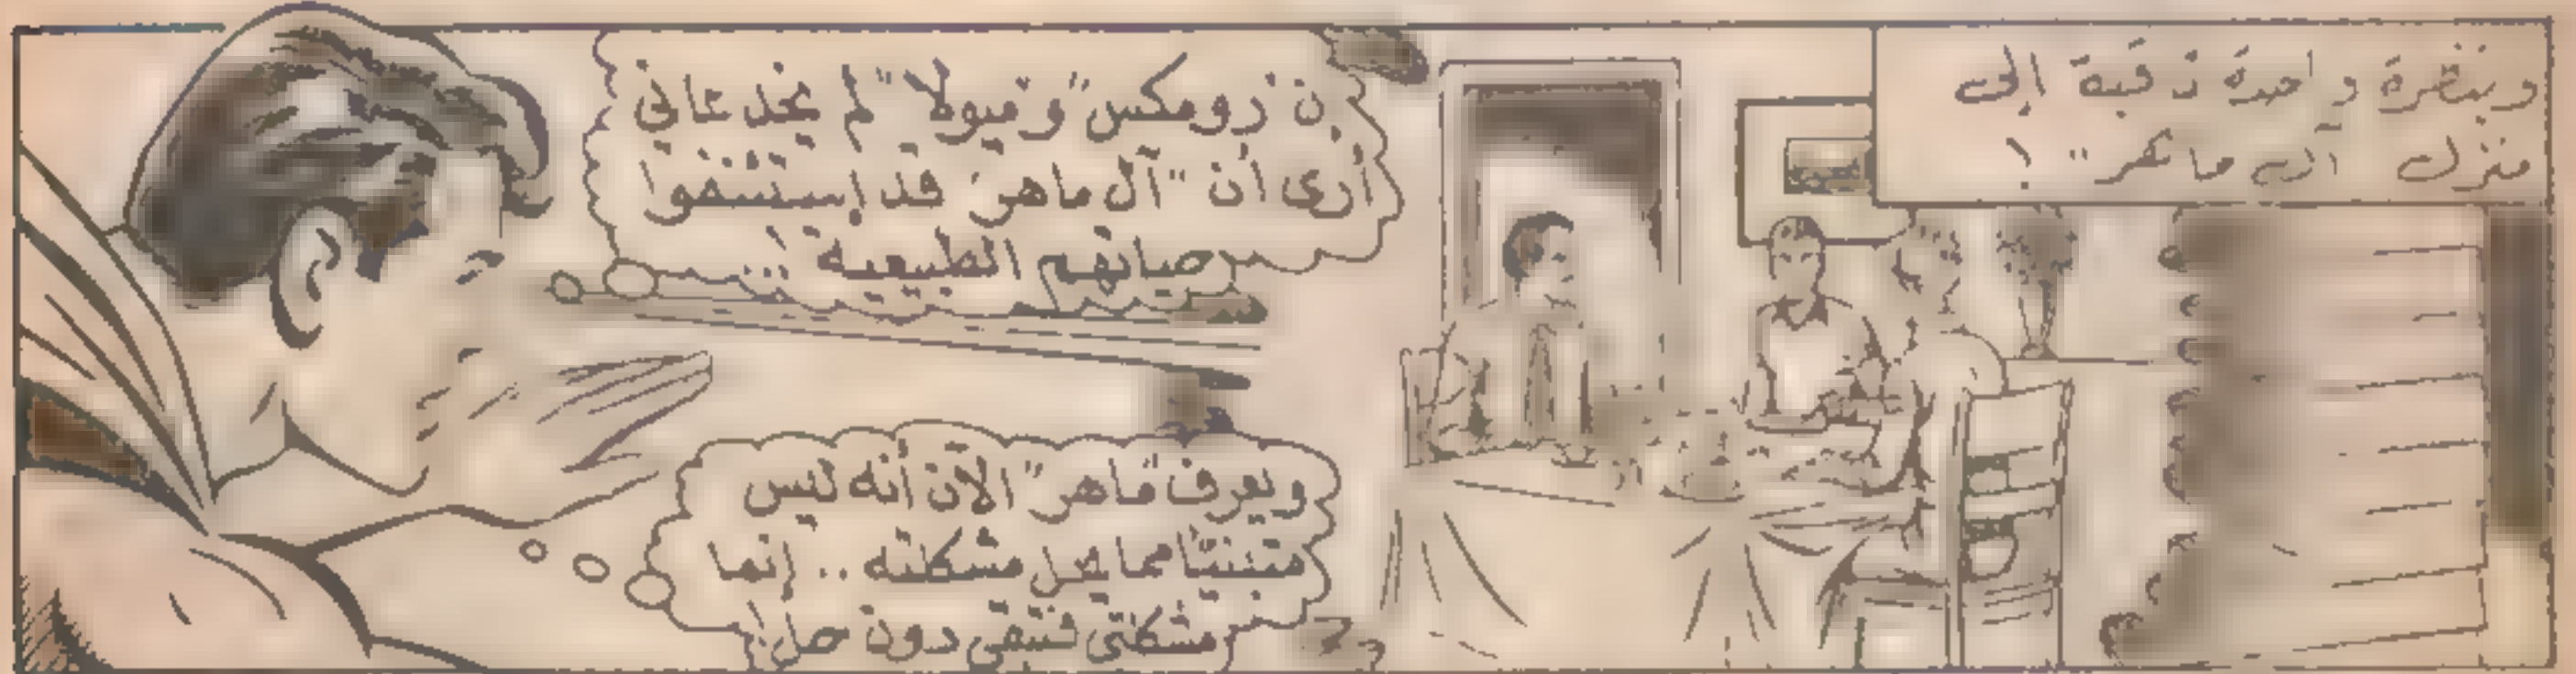 وبنظرة واحدة ثاقبة إلى
منزل "آل ماهر" !
إن "رومكس" و "ميولا" لم يخدعاني
أرى أن "آل ماهر" قد إستئنفوا
حياتهم الطبيعية ...
ويعرف "ماهر" الآن أنه ليس
.. إنما
مشكلتي فتبقى دون حل !